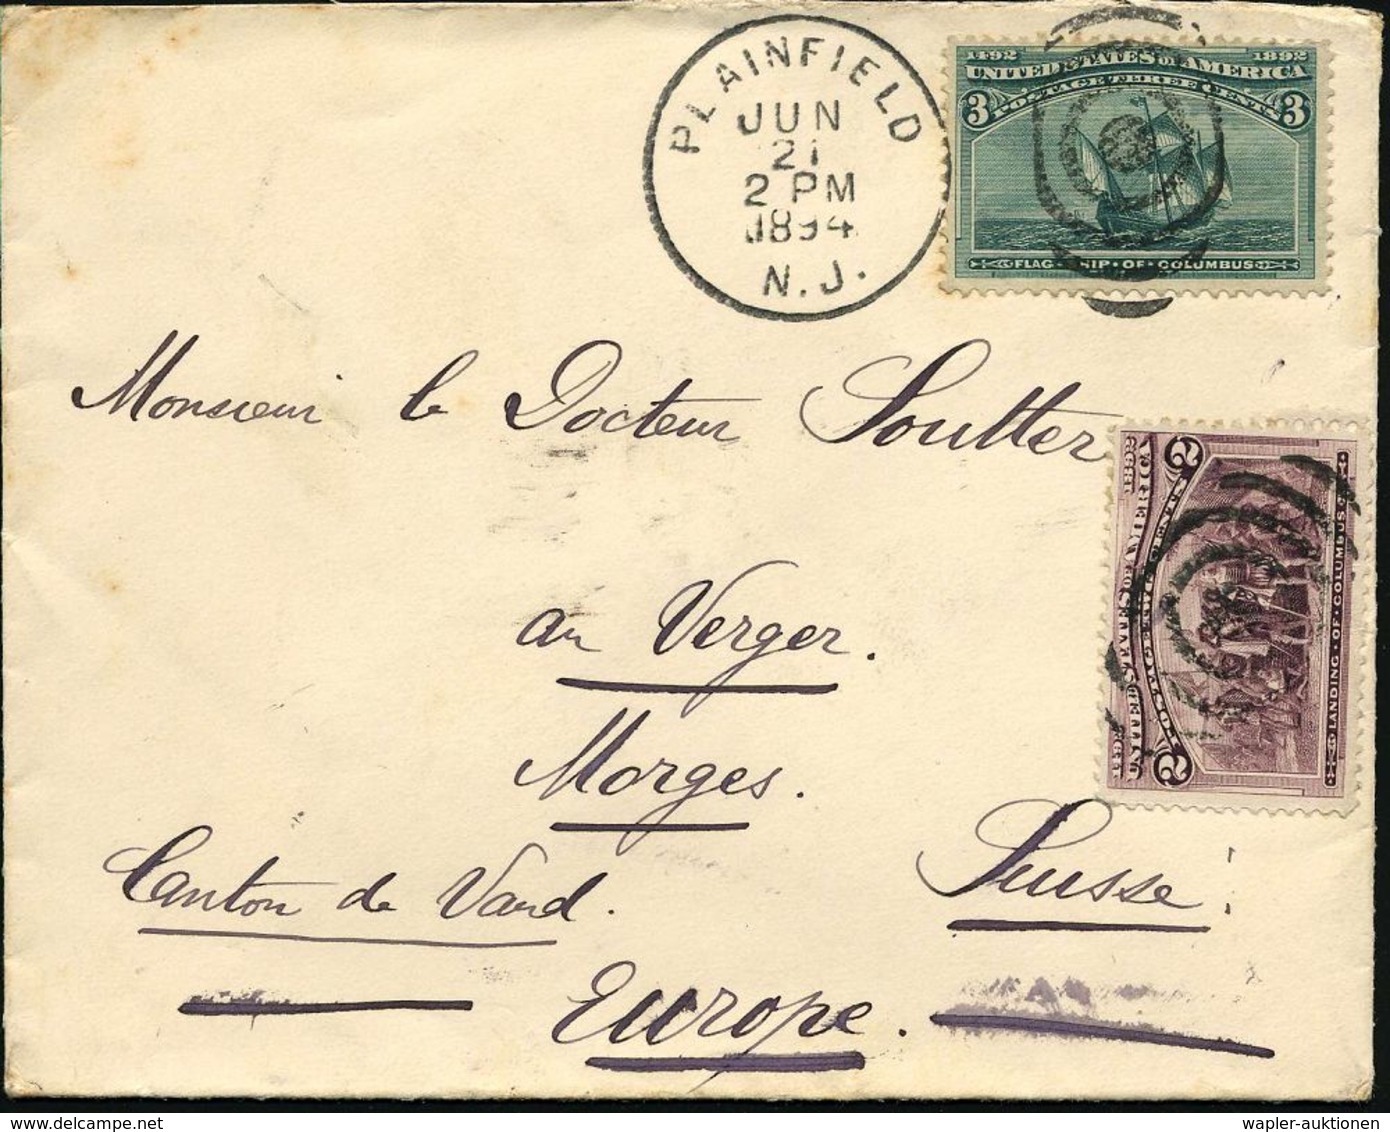 PLAINFIELD
JUN
21
2 PM
1894
N.J.
1492 1892
UNITED STATES OF AMERICA
POSTAGE THREE CENTS
3 3
FLAG SHIP OF COLUMBUS
Monsieur le Docteur Soutter
1892
UNITED STATES OF AMERICA
POSTAGE TWO CENTS
2 2
LANDING OF COLUMBUS
au Verger.
Morges.
Canton de Vaud. Suisse.
Europe.
wapler-auktionen